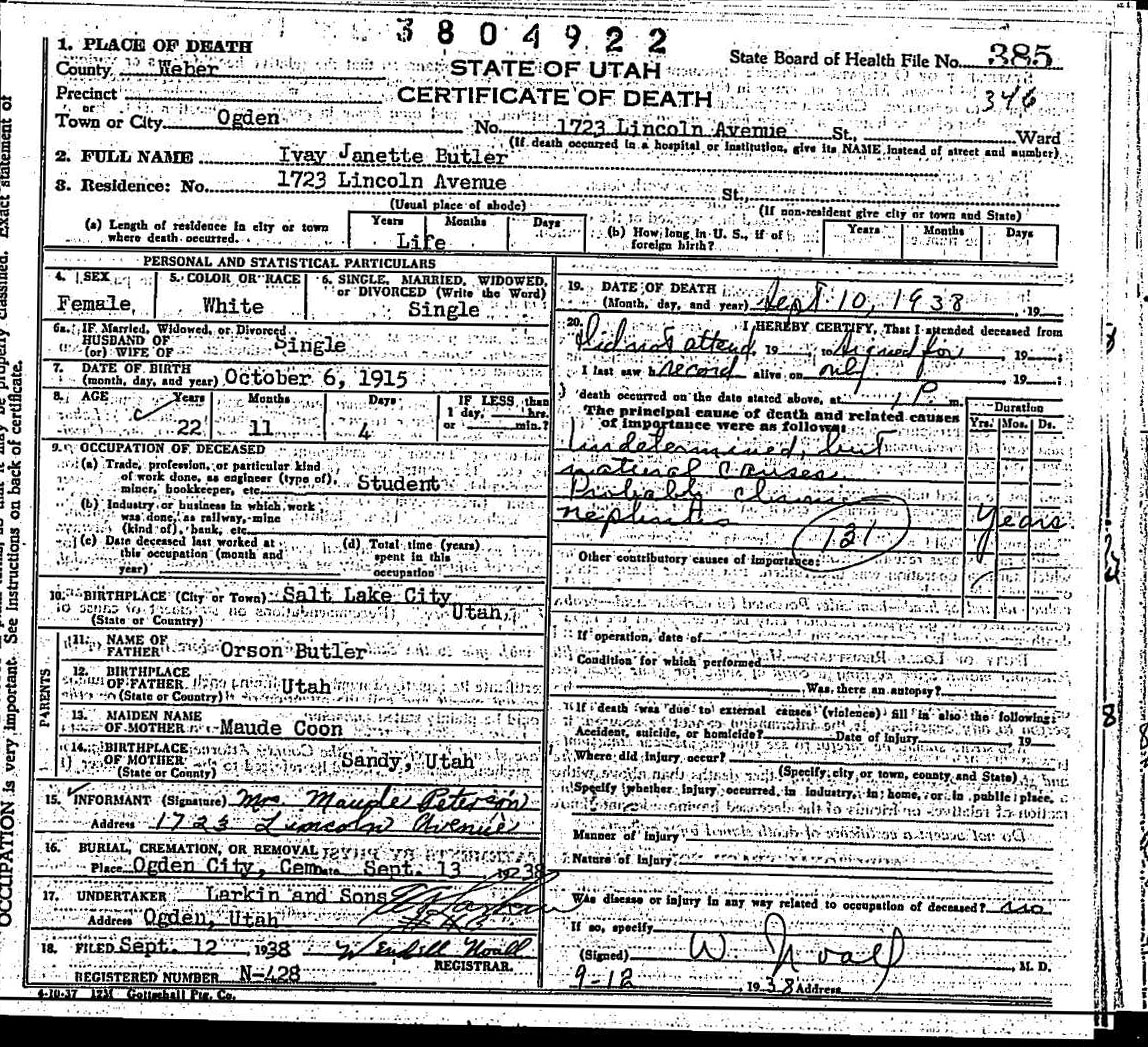 3804922
1. PLACE OF DEATH
State Board of Health File No. 385
County Weber
STATE OF UTAH
346
Precinct
CERTIFICATE OF DEATH
or
Town or City Ogden No. 1723 Lincoln Avenue St., Ward
(If death occurred in a hospital or institution, give its NAME instead of street and number)
2. FULL NAME Ivay Janette Butler
3. Residence: No. 1723 Lincoln Avenue St.,
(Usual place of abode) (If non-resident give city or town and State)
(a) Length of residence in city or town where death occurred. Years Months Days
Life
(b) How long in U. S., if of foreign birth? Years Months Days
PERSONAL AND STATISTICAL PARTICULARS
4. SEX
Female
5. COLOR OR RACE
White
6. SINGLE, MARRIED, WIDOWED, or DIVORCED (Write the Word)
Single
6a. IF Married, Widowed, or Divorced
HUSBAND OF
(or) WIFE OF Single
7. DATE OF BIRTH
(month, day, and year) October 6, 1915
8. AGE Years Months Days IF LESS than
1 day, hrs.
or min.?
22 11 4
9. OCCUPATION OF DECEASED
(a) Trade, profession, or particular kind
of work done, as engineer (type of),
miner, bookkeeper, etc. Student
(b) Industry or business in which work
was done, as railway, mine
(kind of), bank, etc.
(c) Date deceased last worked at
this occupation (month and
year)
(d) Total time (years)
spent in this
occupation
10. BIRTHPLACE (City or Town) Salt Lake City
(State or Country) Utah,
PARENTS
11. NAME OF
FATHER Orson Butler
12. BIRTHPLACE
OF FATHER Utah
(State or Country)
13. MAIDEN NAME
OF MOTHER Maude Coon
14. BIRTHPLACE
OF MOTHER Sandy, Utah
(State or Country)
15. INFORMANT (Signature) Mrs. Maude Peterson
Address 1723 Lincoln Avenue
16. BURIAL, CREMATION, OR REMOVAL
Place Ogden City, Cem Date Sept. 13 1938
17. UNDERTAKER Larkin and Sons
Address Ogden, Utah
18. FILED Sept. 12 1938 Wendell Noall
REGISTRAR.
REGISTERED NUMBER N-428
4-10-37 12M Gottschall Ptg. Co.
19. DATE OF DEATH
(Month, day, and year) Sept 10, 1938, 19
20. I HEREBY CERTIFY, That I attended deceased from
Did not attend, 19 , to Signed for 19 ;
I last saw h record alive on only 19 ;
death occurred on the date stated above, at 1 P. m.
The principal cause of death and related causes
of importance were as follows:
Duration
Yrs. Mos. Ds.
Undetermined, but
natural causes
Probably chronic
nephritis years
131
Other contributory causes of importance:
If operation, date of
Condition for which performed
Was there an autopsy?
If death was due to external causes (violence) fill in also the following:
Accident, suicide, or homicide? Date of injury 19
Where did injury occur?
(Specify city or town, county and State)
Specify whether injury occurred in industry, in home, or in public place,
Manner of injury
Nature of injury
Was disease or injury in any way related to occupation of deceased? no
If so, specify
(Signed) W. Noall M. D.
9-12 1938 Address
OCCUPATION is very important. See Instructions on back of certificate.
be properly classified. Exact statement of